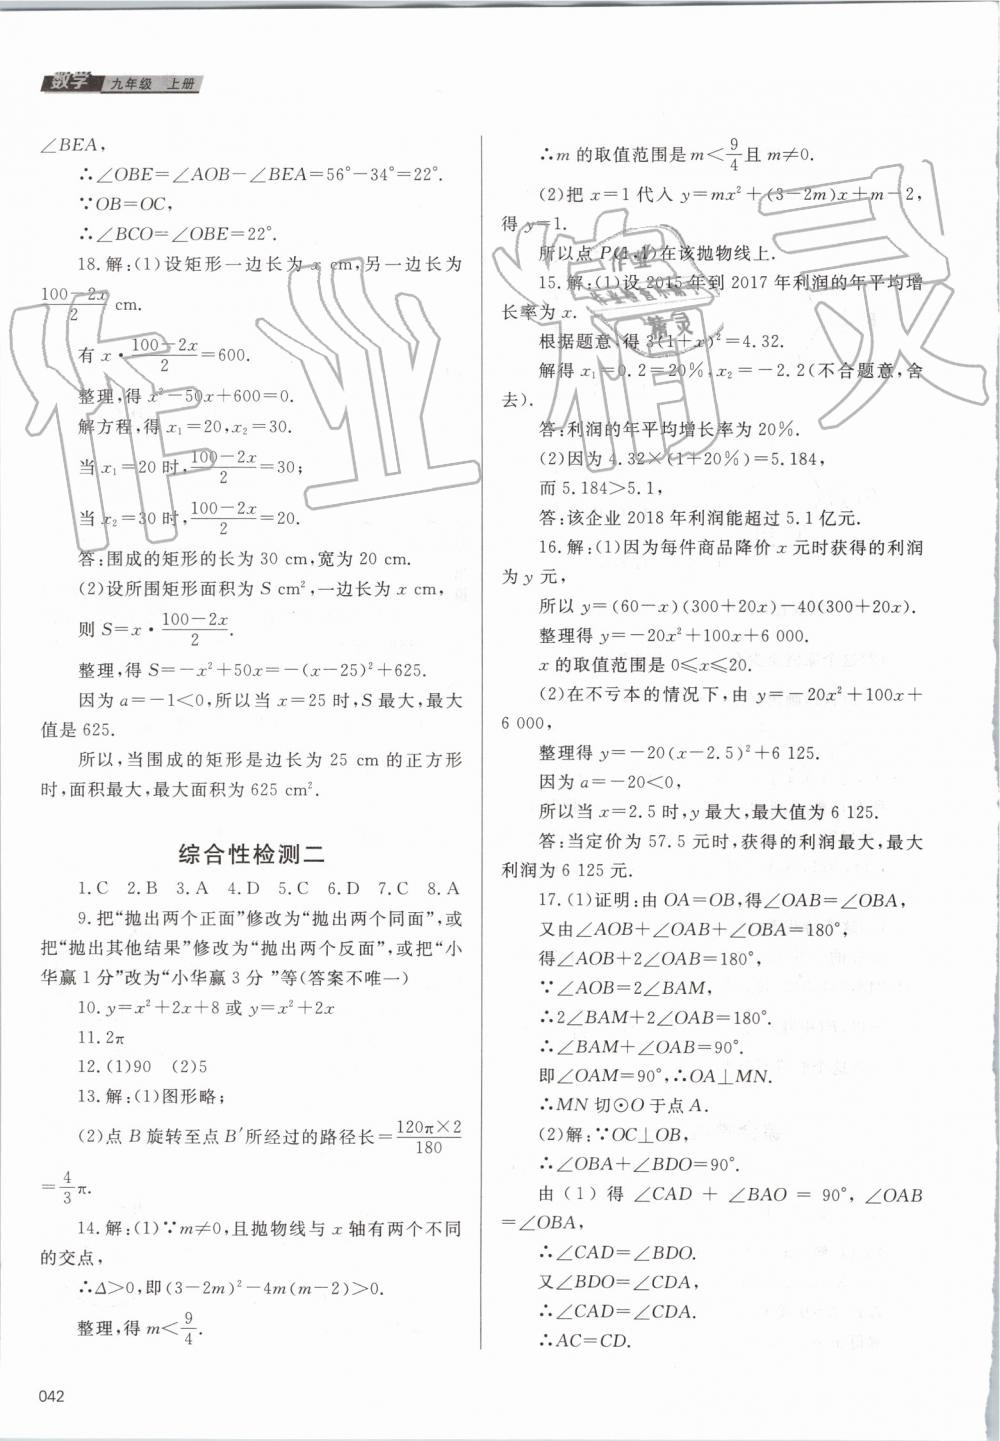 数学 九年级 上册
∠BEA,
∴∠OBE=∠AOB-∠BEA=56°-34°=22°.
∵OB=OC,
∴∠BCO=∠OBE=22°.
18.解:(1)设矩形一边长为 x cm,另一边长为
(100-2x)/2 cm.
有 x·(100-2x)/2=600.
整理,得 x²-50x+600=0.
解方程,得 x₁=20,x₂=30.
当 x₁=20 时,(100-2x)/2=30;
当 x₂=30 时,(100-2x)/2=20.
答:围成的矩形的长为 30 cm,宽为 20 cm.
(2)设所围矩形面积为 S cm²,一边长为 x cm,
则 S=x·(100-2x)/2.
整理,得 S=-x²+50x=-(x-25)²+625.
因为 a=-1<0,所以当 x=25 时,S 最大,最大
值是 625.
所以,当围成的矩形是边长为 25 cm 的正方形
时,面积最大,最大面积为 625 cm².
综合性检测二
1.C 2.B 3.A 4.D 5.C 6.D 7.C 8.A
9.把“抛出两个正面”修改为“抛出两个同面”,或
把“抛出其他结果”修改为“抛出两个反面”,或把“小
华赢 1 分”改为“小华赢 3 分 ”等(答案不唯一)
10.y=x²+2x+8 或 y=x²+2x
11.2π
12.(1)90 (2)5
13.解:(1)图形略;
(2)点 B 旋转至点 B′所经过的路径长=(120π×2)/180
=4/3π.
14.解:(1)∵m≠0,且抛物线与 x 轴有两个不同
的交点,
∴Δ>0,即(3-2m)²-4m(m-2)>0.
整理,得 m<9/4.
042
∴m 的取值范围是 m<9/4且 m≠0.
(2)把 x=1 代入 y=mx²+(3-2m)x+m-2,
得 y=1.
所以点 P(1,1)在该抛物线上.
15.解:(1)设 2015 年到 2017 年利润的年平均增
长率为 x.
根据题意,得 3(1+x)²=4.32.
解得 x₁=0.2=20%,x₂=-2.2(不合题意,舍
去).
答:利润的年平均增长率为 20%.
(2)因为 4.32×(1+20%)=5.184,
而 5.184>5.1,
答:该企业 2018 年利润能超过 5.1 亿元.
16.解:(1)因为每件商品降价 x 元时获得的利润
为 y 元,
所以 y=(60-x)(300+20x)-40(300+20x).
整理得 y=-20x²+100x+6 000.
x 的取值范围是 0≤x≤20.
(2)在不亏本的情况下,由 y=-20x²+100x+
6 000,
整理得 y=-20(x-2.5)²+6 125.
因为 a=-20<0,
所以当 x=2.5 时,y 最大,最大值为 6 125.
答:当定价为 57.5 元时,获得的利润最大,最大
利润为 6 125 元.
17.(1)证明:由 OA=OB,得∠OAB=∠OBA,
又由∠AOB+∠OAB+∠OBA=180°,
得∠AOB+2∠OAB=180°,
∵∠AOB=2∠BAM,
∴2∠BAM+2∠OAB=180°.
∴∠BAM+∠OAB=90°.
即∠OAM=90°,∴OA⊥MN.
∴MN 切⊙O 于点 A.
(2)解:∵OC⊥OB,
∴∠OBA+∠BDO=90°.
由(1)得 ∠CAD + ∠BAO = 90°,∠OAB
=∠OBA,
∴∠CAD=∠BDO.
又∠BDO=∠CDA,
∴∠CAD=∠CDA.
∴AC=CD.
作业精灵